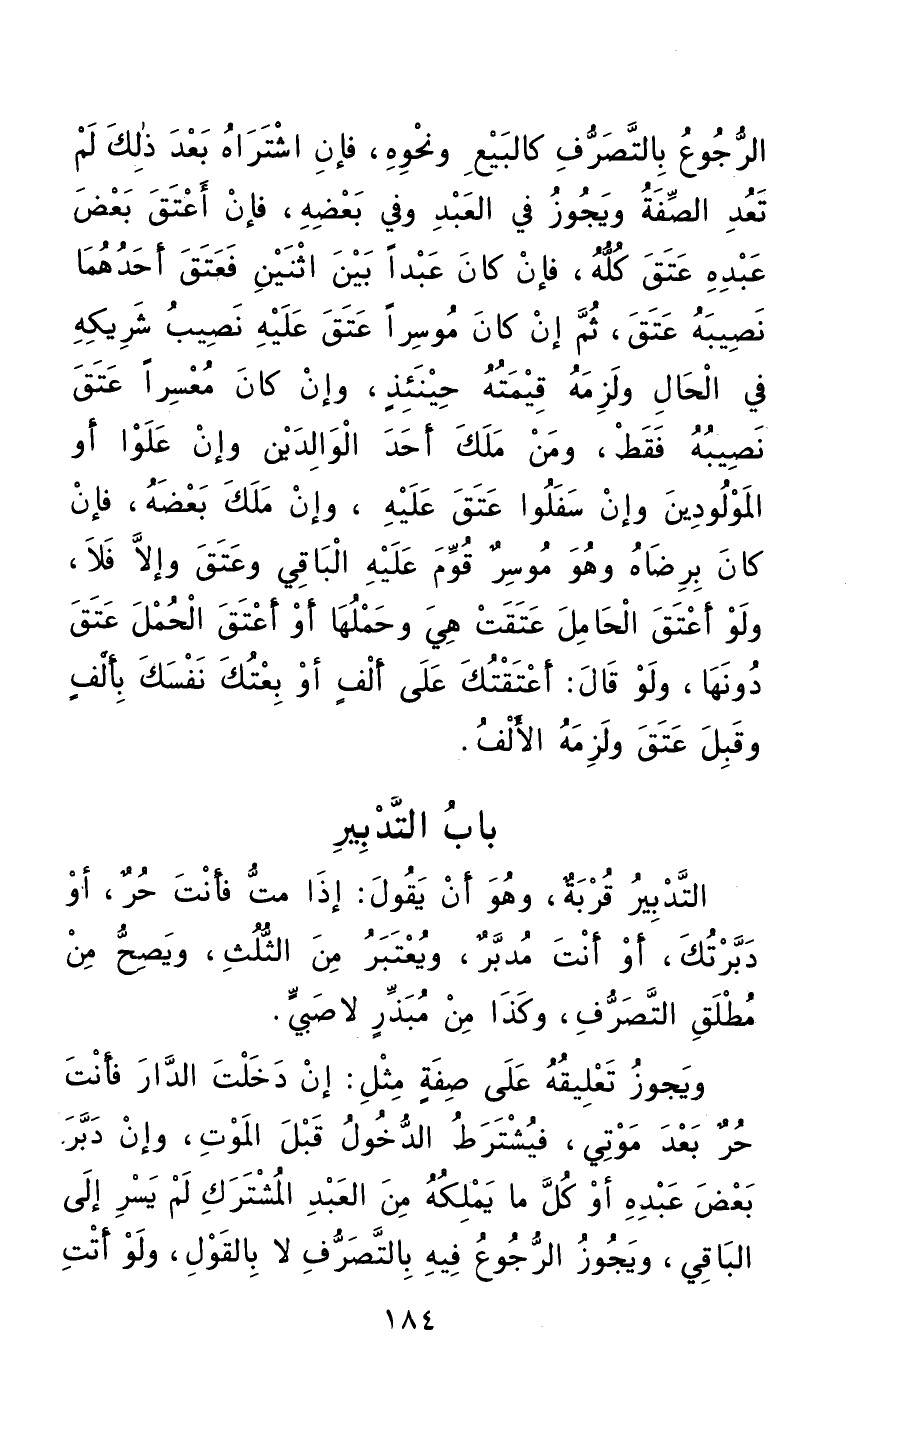 الرُّجُوعُ بِالتَّصَرُّفِ كالبَيْعِ ونحْوِهِ، فإنِ اشْتَرَاهُ بَعْدَ ذٰلِكَ لَمْ
تَعُدِ الصِّفَةُ ويَجُوزُ في العَبْدِ وفي بَعْضِهِ، فإنْ أَعْتَقَ بَعْضَ
عَبْدِهِ عَتَقَ كُلُّهُ، فإنْ كانَ عَبْداً بَيْنَ اثْنَيْنِ فَعَتَقَ أحَدُهُمَا
نَصِيبَهُ عَتَقَ، ثُمَّ إنْ كانَ مُوسِراً عَتَقَ عَلَيْهِ نَصِيبُ شَرِيكِهِ
في الْحَالِ ولَزِمَهُ قِيْمَتُهُ حِيْنَئِذٍ، وإنْ كانَ مُعْسِراً عَتَقَ
نَصِيبُهُ فَقَطْ، ومَنْ مَلَكَ أحَدَ الْوَالِدَيْنِ وإنْ عَلَوْا أو
المَوْلُودِينَ وإنْ سَفَلُوا عَتَقَ عَلَيْهِ ، وإنْ مَلَكَ بَعْضَهُ، فإنْ
كانَ بِرِضَاهُ وهُوَ مُوسِرٌ قُوِّمَ عَلَيْهِ الْبَاقِي وعَتَقَ وإلاَّ فَلاَ،
ولَوْ أعْتَقَ الْحَامِلَ عَتَقَتْ هِيَ وحَمْلُهَا أوْ أعْتَقَ الْحُمْلَ عَتَقَ
دُونَهَا، ولَوْ قَالَ: أعْتَقْتُكَ عَلَى ألْفٍ أوْ بِعْتُكَ نَفْسَكَ بِألْفٍ
وقَبِلَ عَتَقَ ولَزِمَهُ الأَلْفُ.
بابُ التَّدْبِيرِ
التَّدْبِيرُ قُرْبَةٌ، وهُوَ أنْ يَقُولَ: إذَا متُّ فأنْتَ حُرٌّ، أوْ
دَبَّرْتُكَ، أوْ أنْتَ مُدبَّرٌ، ويُعْتَبَرُ مِنَ الثُّلُثِ، ويَصِحُّ مِنْ
مُطْلَقِ التَّصَرُّفِ، وكَذَا مِنْ مُبَذِّرٍ لاصَبِيٍّ.
ويَجوزُ تَعْلِيقُهُ عَلَى صِفَةٍ مِثْلِ: إنْ دَخَلْتَ الدَّارَ فأنْتَ
حُرٌّ بَعْدَ مَوْتِي، فيُشْتَرَطُ الدُّخُولُ قَبْلَ المَوْتِ، وإنْ دَبَّرَ
بَعْضَ عَبْدِهِ أوْ كُلَّ ما يَمْلِكُهُ مِنَ العَبْدِ المُشْتَرَكِ لَمْ يَسْرِ إلَى
البَاقِي، ويَجُوزُ الرُّجُوعُ فِيهِ بِالتَّصَرُّفِ لا بِالقَوْلِ، ولَوْ أتْتِ
١٨٤